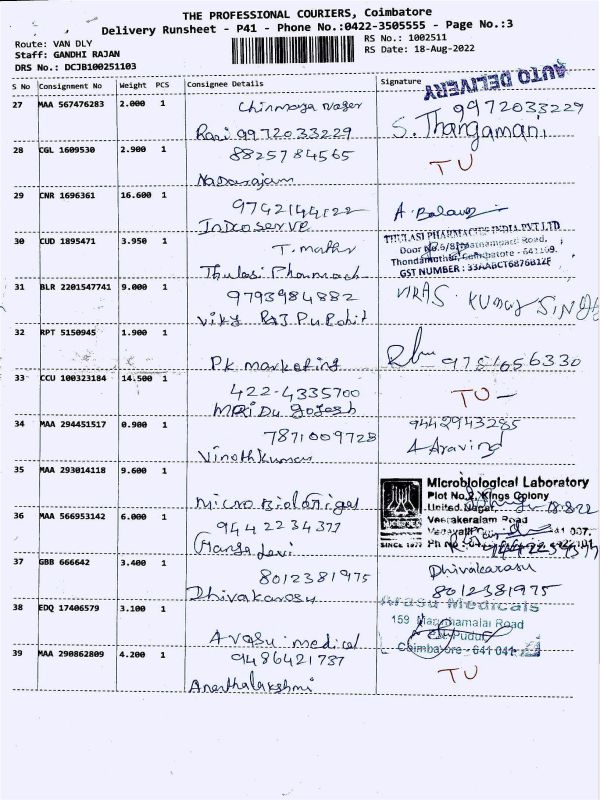 THE PROFESSIONAL COURIERS, Coimbatore
Delivery Runsheet - P41 - Phone No.:0422-3505555 - Page No.:3
Route: VAN DLY
Staff: GANDHI RAJAN
DRS No.: DCJB100251103
RS No.: 1002511
RS Date: 18-Aug-2022
AUTO DELIVERY
S No Consignment No Weight PCS Consignee Details Signature
27 MAA 567476283 2.000 1 Chinmaya Nager
Ravi 9972033229
9972033229
S. Thangamani
28 CGL 1609530 2.900 1 8825784565
Nadarajan
TU
29 CNR 1696361 16.600 1 9742144122
Indoserve
A. Balan
30 CUD 1895471 3.950 1 T. mathr
Thulasi Pharmach
THULASI PHARMACIES INDIA PVT LTD
Door No.6/8, Road,
Thondamuthur, Coimbatore - 641109.
GST NUMBER : 33AABCT6876B1ZF
31 BLR 2201547741 9.000 1 9793984882
Viky Raj Purohit
VIRAS. KUMAR SINGH
32 RPT 5150945 1.900 1
PK marketing
9751656330
33 CCU 100323184 14.500 1 422-4335700
MRiDu
TU
34 MAA 294451517 0.900 1 7871009728
Vinothkumar
9442943285
Aravind
35 MAA 293014118 9.600 1
Micro Biological
Microbiological Laboratory
Plot No.2, Kings Colony
United Nagar,
Veerakeralam Road
SINCE 1977
18.8.22
36 MAA 566953142 6.000 1 9442234377
Mansa Devi
37 GBB 666642 3.400 1 8012381975
Dhivakarasu
Dhivakarasu
8012381975
38 EDQ 17406579 3.100 1
Arasu medical
Arasu Medicals
159 Maruthamalai Road
P.N. Pudur
Coimbatore - 641 041
39 MAA 290862809 4.200 1 9486421737
Ananthalakshmi
TU